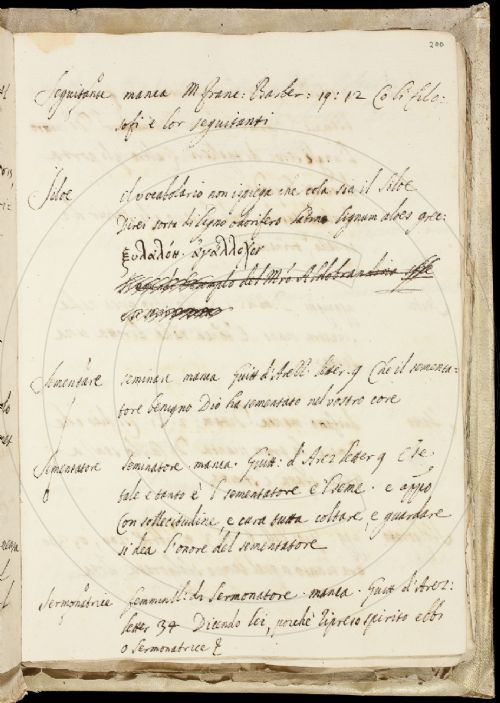 200
Seguitante manca M Franc: Barber: 19: 12 Co li filo:
sofi e lor seguitanti
Siloe il vocabolario non ispiega che cosa sia il Siloe
Direi sorte di legno odorifero latino lignum aloes gre:
ξυλαλόη. ἀγάλλοχον
esemplo del Mro Aldobrandino
Sementare seminare manca Guitt d'Arezz: letter 9 Che il sementa:
tore benigno Dio ha sementato nel vostro core
Sementatore seminatore. manca. Guitt: d'Arez letter 9 E se
tale e tanto è l'sementatore e l'seme. e appo
Con sollecitudine, e cura tutta coltare, e guardare
si dea l'onore del sementatore
Sermonatrice femminil: di Sermonatore. manca. Guitt d'Arez:
letter 34 Dicendo lei, poichè ripreso spirito ebbi
o sermonatrice &